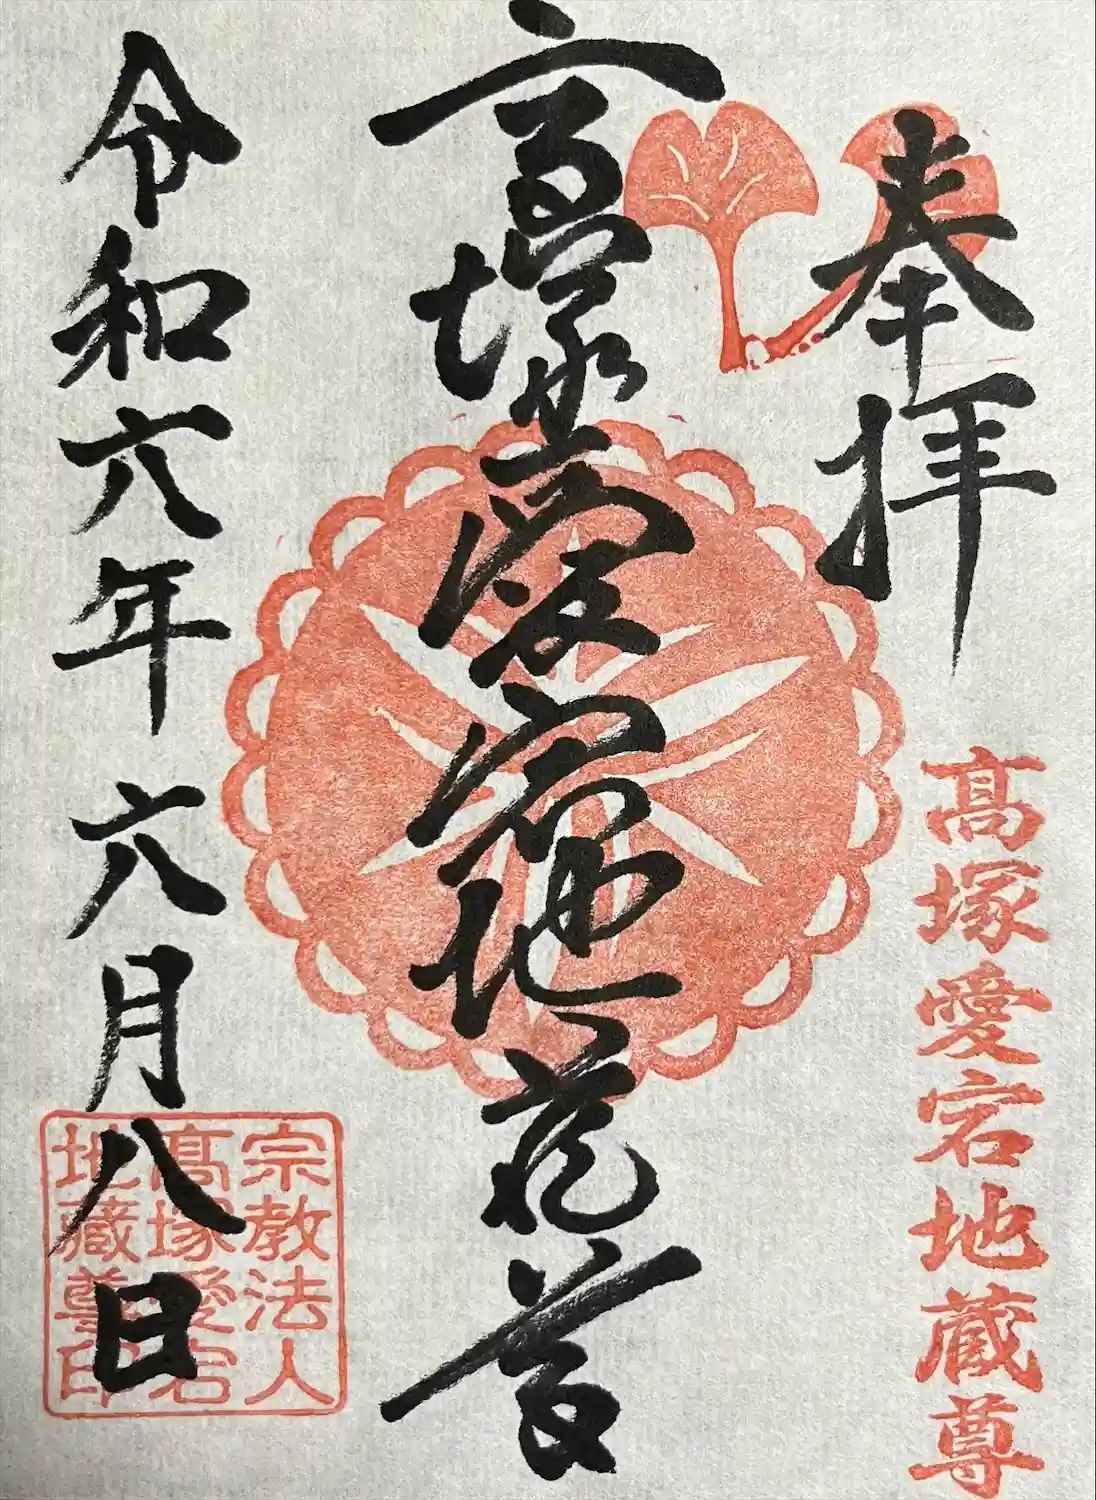 奉拝
髙塚愛宕地蔵尊
髙塚愛宕地蔵尊
令和六年 六月八日
宗教法人
髙塚愛宕
地蔵尊印